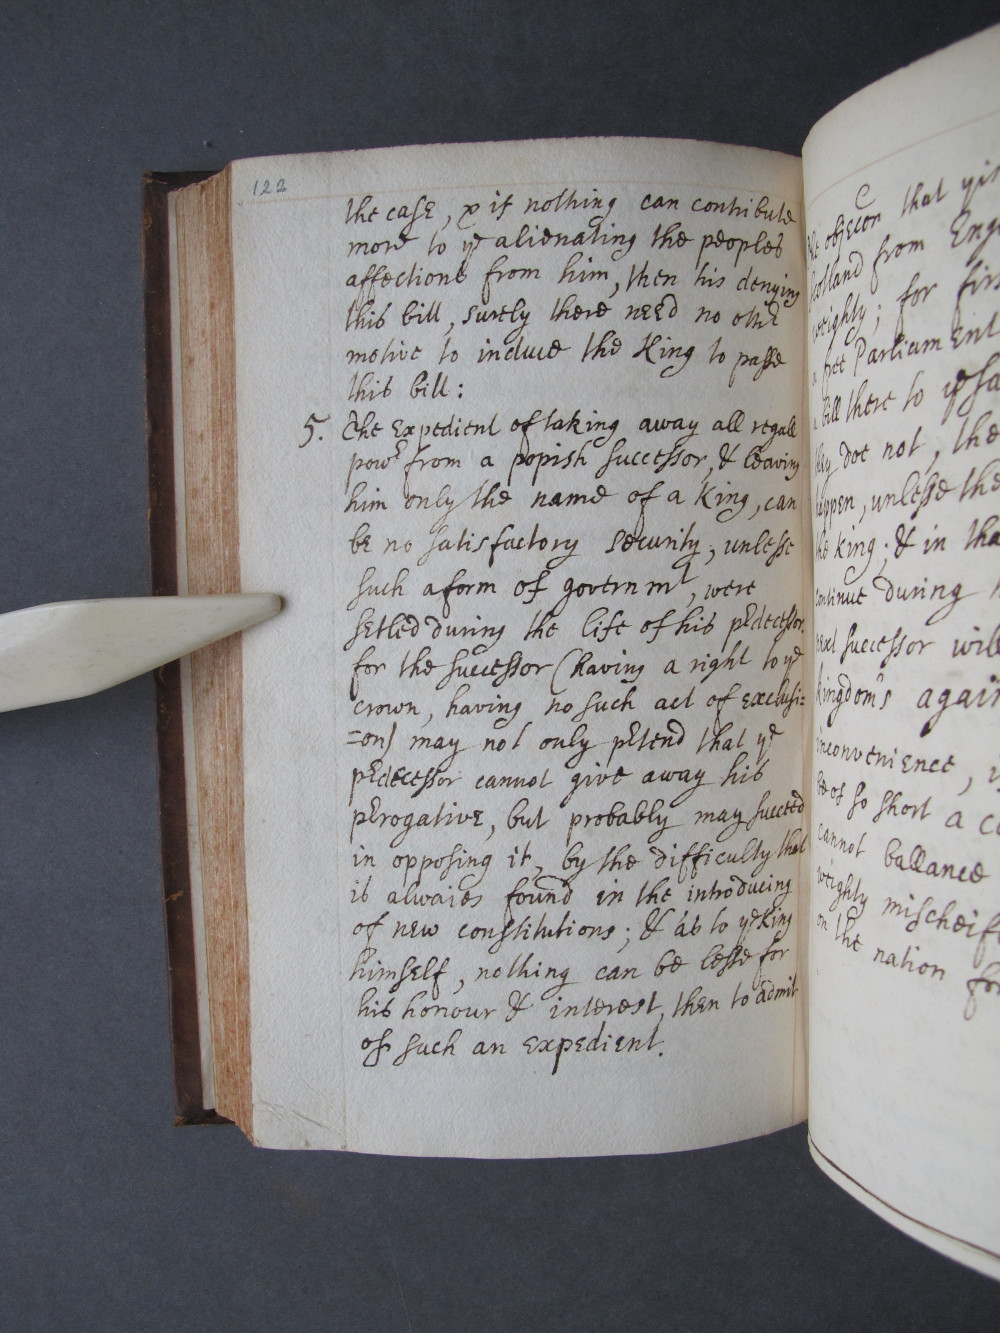 122
the case, & if nothing can contribute
more to ye alienating the peoples
affections from him, then his denying
this bill, surely there need no other
motive to induce the King to passe
this bill:
5. The Expedient of taking away all regall
powr from a popish successor, & leaving
him only the name of a King, can
be no satisfactory security, unlesse
such a form of governmt, were
setled during the life of his pedecessor.
for the successor (having a right to ye
crown, having no such act of exclusi=
=on) may not only petend that ye
pedecessor cannot give away his
perogative, but probably may succeed
in opposing it, by the difficulty that
is alwaies found in the introducing
of new constitutions; & as to ye King
himself, nothing can be lesse for
his honour & interest, then to admit
of such an expedient.
objecon that
Scotland from
weighty; for
a free Parliament
bill there to ye
they doe not, the
happen, unlesse the
the King; & in
continue during
next successor will
kingdoms again
inconvenience,
be of so short a
cannot ballance
weighty mischeifs
on the nation for